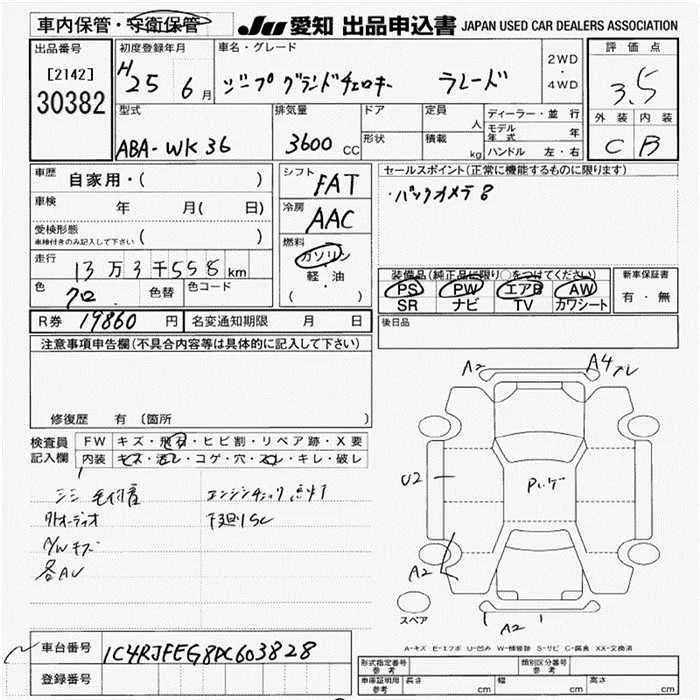 車内保管・守衛保管
JU 愛知 出品申込書 JAPAN USED CAR DEALERS ASSOCIATION
出品番号
[2142]
30382
初度登録年月
H25 6月
車名・グレード
ジープ グランドチェロキー ラレード
2WD
・
4WD
評価点
3.5
外装 内装
C B
型式
ABA-WK36
排気量
3600 CC
ドア
形状
定員
人
積載
kg
ディーラー・並行
モデル年式 年
ハンドル 左・右
車歴 自家用・( )
車検 年 月( 日)
愛検形態
車検付きのみ記入して下さい ( )
走行 13万3千558km
色 クロ 色替 色コード
シフト FAT
冷房 AAC
燃料
ガソリン
・
軽・油
( )
セールスポイント(正常に機能するものに限ります)
・バックカメラ
装備品(純正品に限り○をつけてください)
PS PW エアB AW
SR ナビ TV カワシート
新車保証書
有・無
R券 19860 円 名変通知期限 月 日
後日品
注意事項申告欄(不具合内容等は具体的に記入して下さい)
修復歴 有 (箇所 )
検査員
記入欄
FW キズ・飛石・ヒビ割・リペア跡・X要
内装 キズ・汚レ・コゲ・穴・スレ・キレ・破レ
エンジンチェック点灯
外オーディオ
下廻りSC
A/Wキズ
各AU
A2 A4
U2
A2
A2
スペア
A-キズ E-エクボ U-凹み W-補修跡 S-サビ C-腐食 XX-交換済
車台番号 1C4RJFEG8DC603828
登録番号
形式指定番号
参考
類別区分番号
参考
車庫証明用
参考
長さ cm 幅 cm 高さ cm